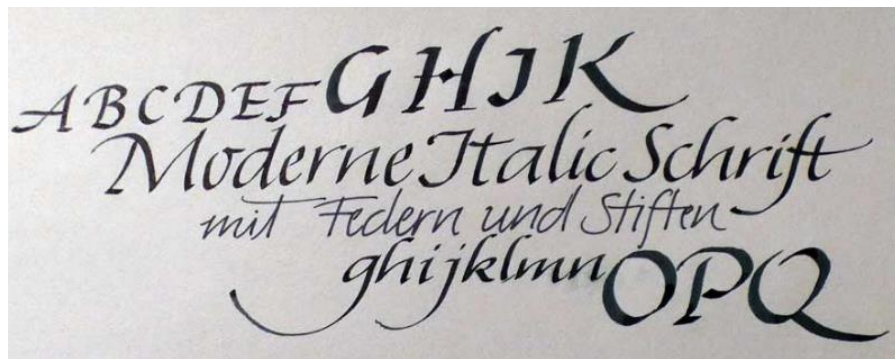 ABCDEFGHIJK
Moderne Italic Schrift
mit Federn und Stiften
ghijklmnOPQ